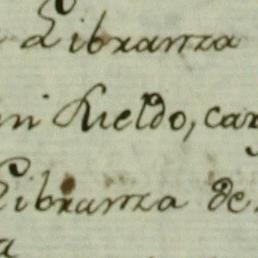 Libranza
mi Sueldo, car
Libranza de
a